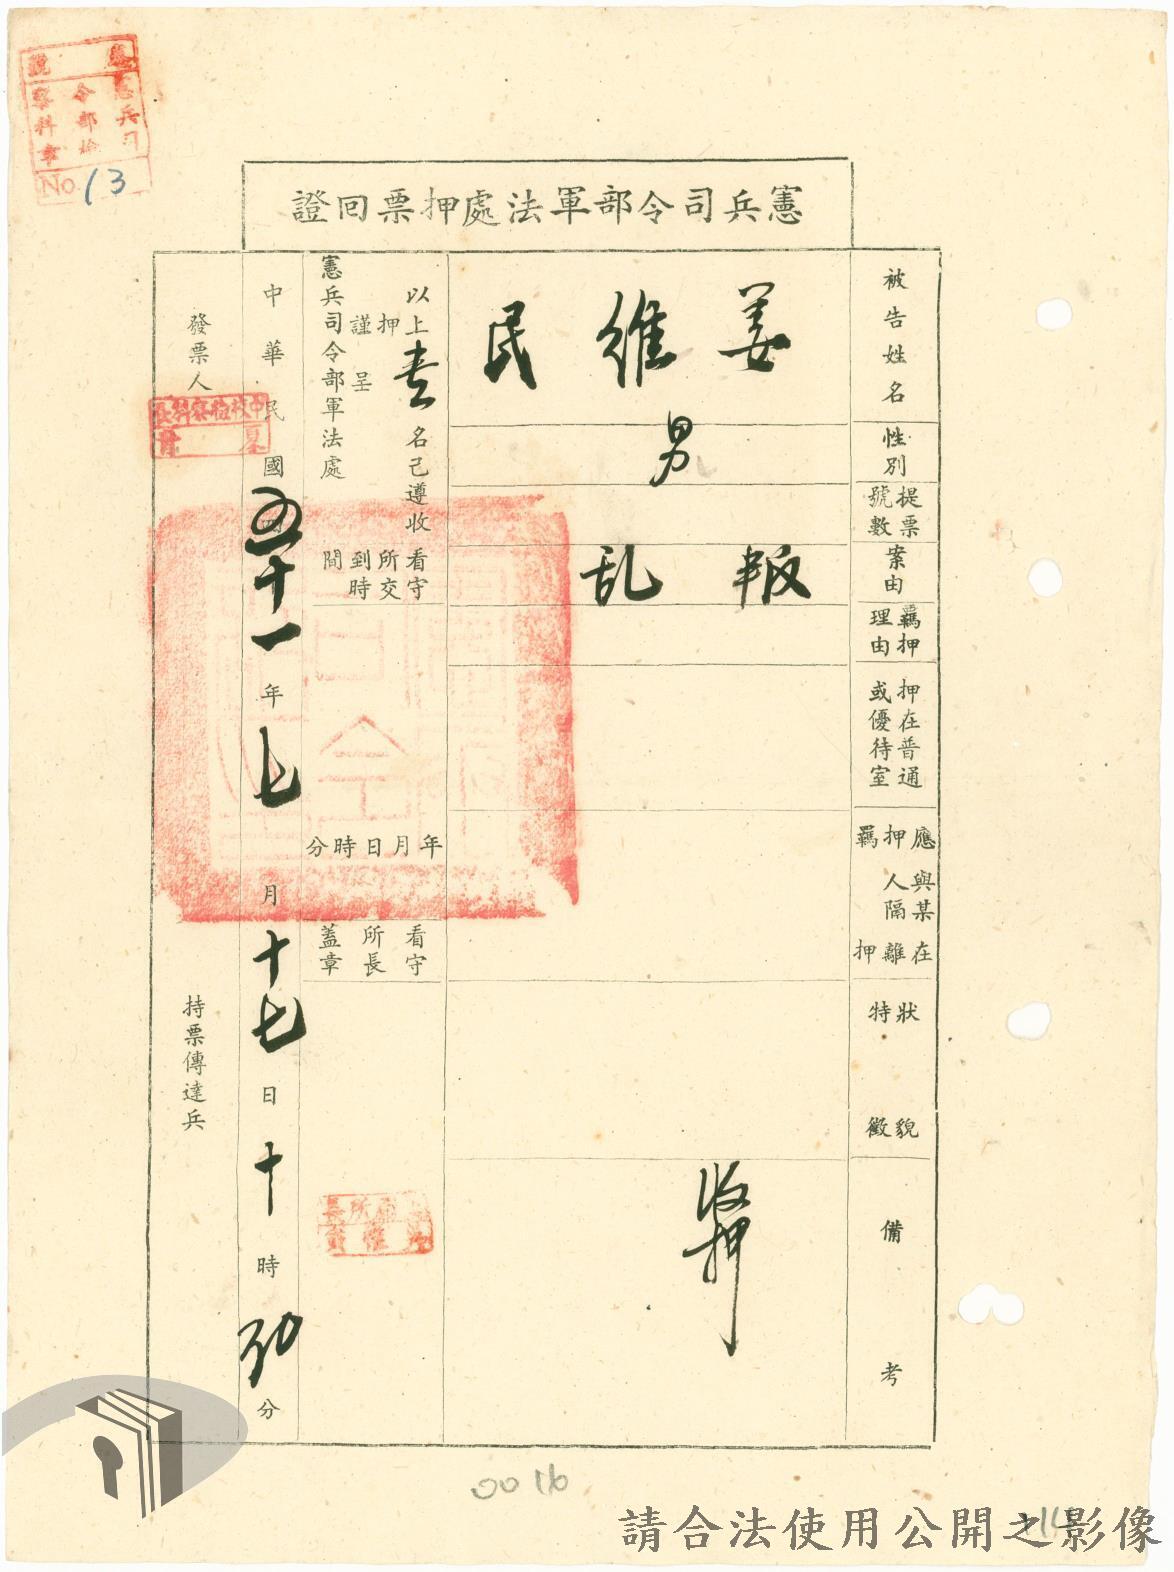 No. 13
憲兵司令部軍法處押票回證
被告姓名
姜維民
性別
男
提票號數
案由
叛乱
羈押理由
押在普通或優待室
應與某在押人隔離羈押
特徵
狀貌
備考
收押
以上壹名已遵收
押
謹呈
憲兵司令部軍法處
看守所交到時間
年月日時分
看守所長蓋章
中華民國五十一年七月十七日十時卅分
發票人
持票傳達兵
0016
請合法使用公開之影像